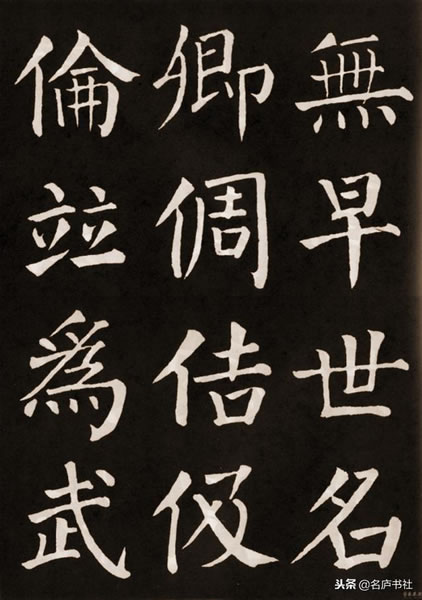 無早世名
卿倜佶伋
倫竝爲武
头条 @名庐书社